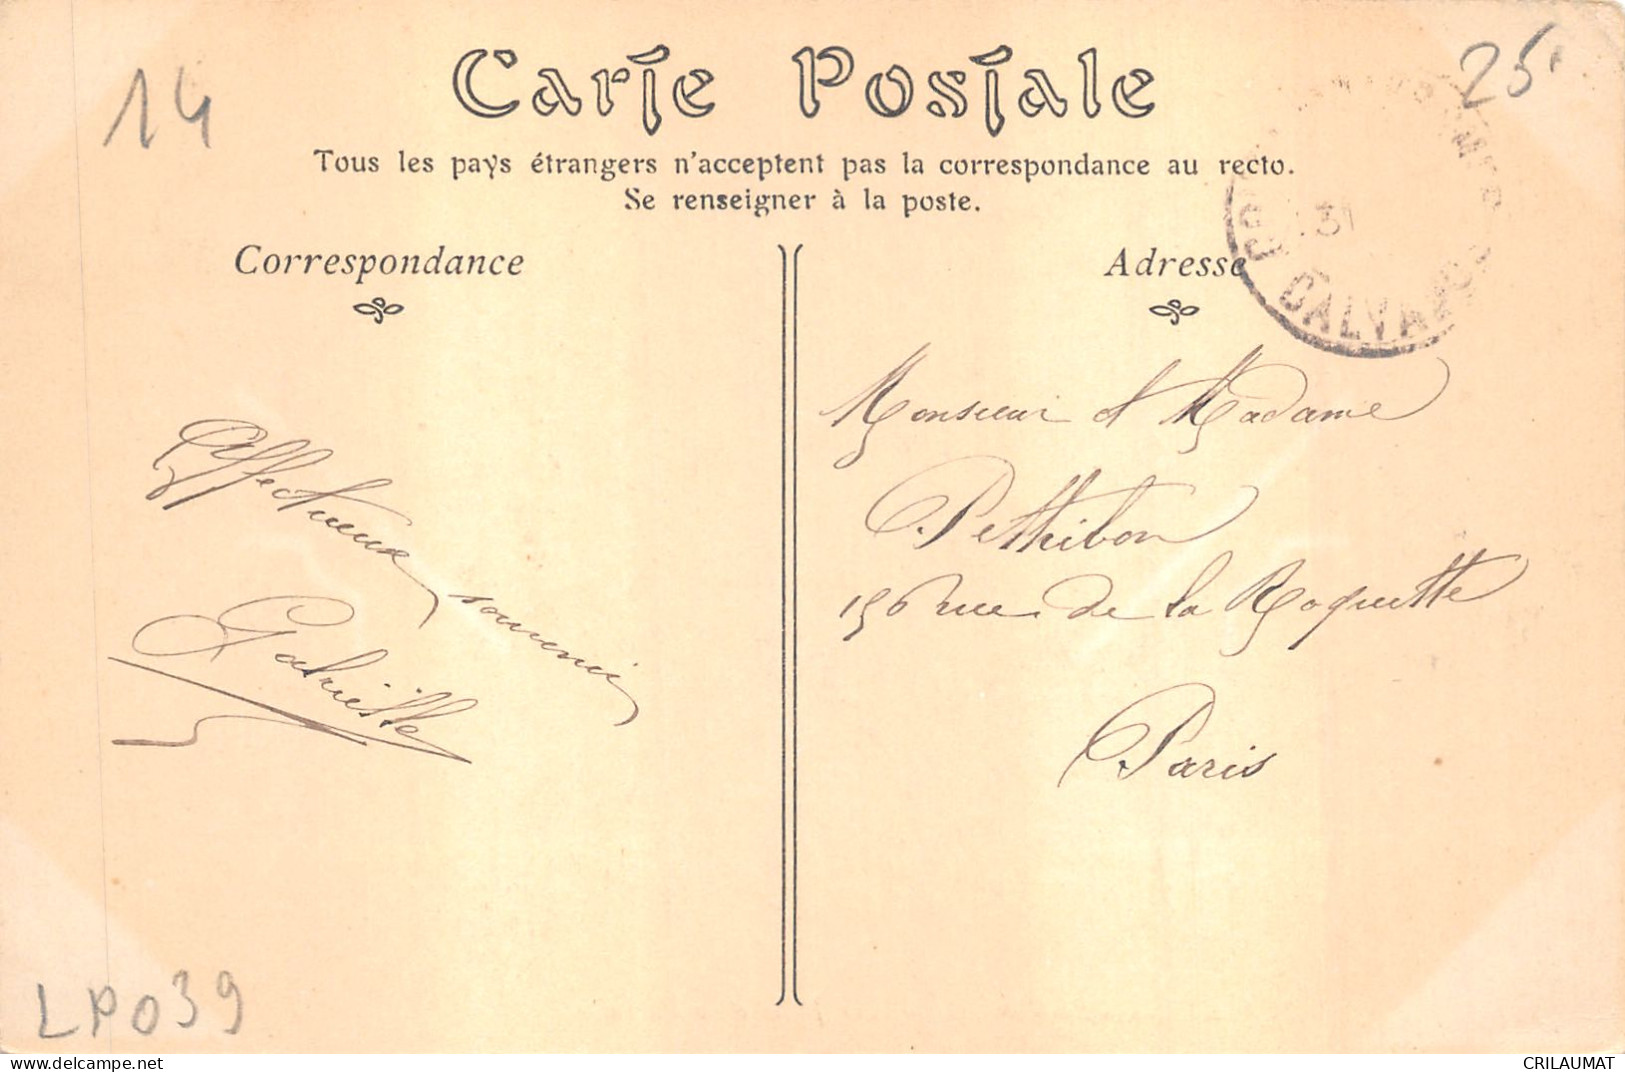 14
25
Carte Postale
Tous les pays étrangers n'acceptent pas la correspondance au recto.
Se renseigner à la poste.
31
CALVADOS
Correspondance
Adresse
Affectueux souvenir
Gabrielle
Monsieur et Madame
Petthibon
156 rue de la Roquette
Paris
LP039
CRILAUMAT